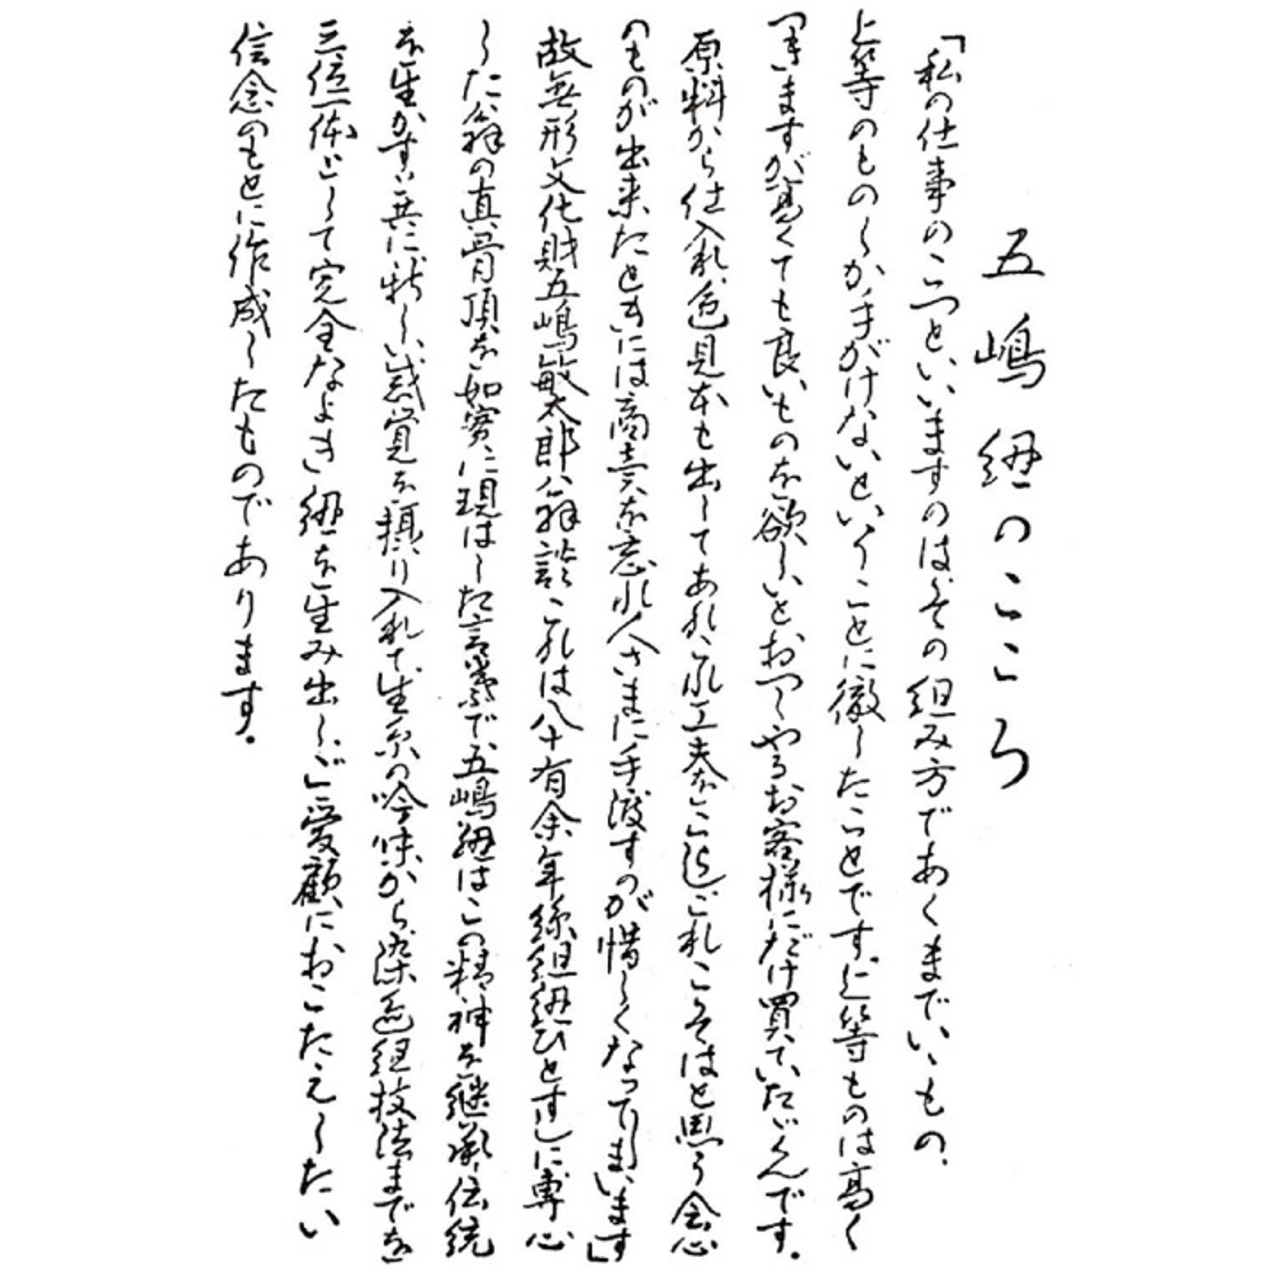 五嶋紐のこころ
「私の仕事のこつといいますのは、その組み方であくまでいいもの、
上等のものしか手がけないということに徹したことです。上等ものは高く
つきますが高くても良いものを欲しいとおっしゃるお客様にだけ買っていただくんです。
原料から仕入れ、色見本も出してあれこれ工夫をこらしこれこそはと思う会心
のものが出来たときには商売を忘れ人さまに手渡すのが惜しくなってしまいます」
故無形文化財五嶋敏太郎翁談 これは八十有余年絲組紐ひとすじに専心
した翁の真骨頂を如実に現はした言葉で五嶋紐はこの精神を継承、伝統
を生かすと共に新しい感覚を摂り入れて生糸の吟味から染色組技法までを
三位一体として完全なよき紐を生み出し、ご愛顧におこたえしたい
信念のもとに作成したものであります。